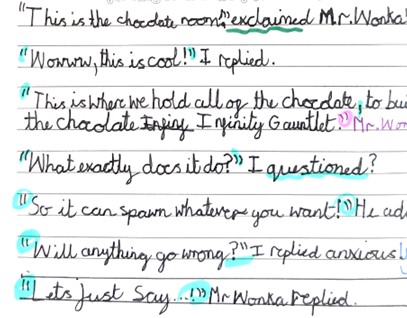 "This is the chocolate room" exclaimed Mr. Wonka
"Wowww, this is cool!" I replied.
"This is where we hold all of the chocolate, to bui
the chocolate Infinity Gauntlet." Mr. Won
"What exactly does it do?" I questioned?
"So it can spawn whatever you want!" He ad
"Will anything go wrong?" I replied anxiousl
"Lets just say...!" Mr Wonka replied.